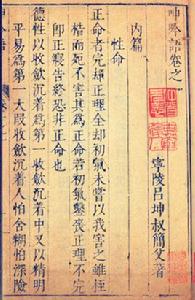 呻吟語卷之
寧陵呂坤叔簡父著
內篇
性命
正命者完却正理全却初氣未嘗以我害之雖桎
梏而死不害其為正命若初氣鑿喪正理不完
即正寢告終恐非正命也
德性以收歛沉着為第一收歛沉着中又以精明
平易為第一大段收歛沉着人怕含糊怕深險